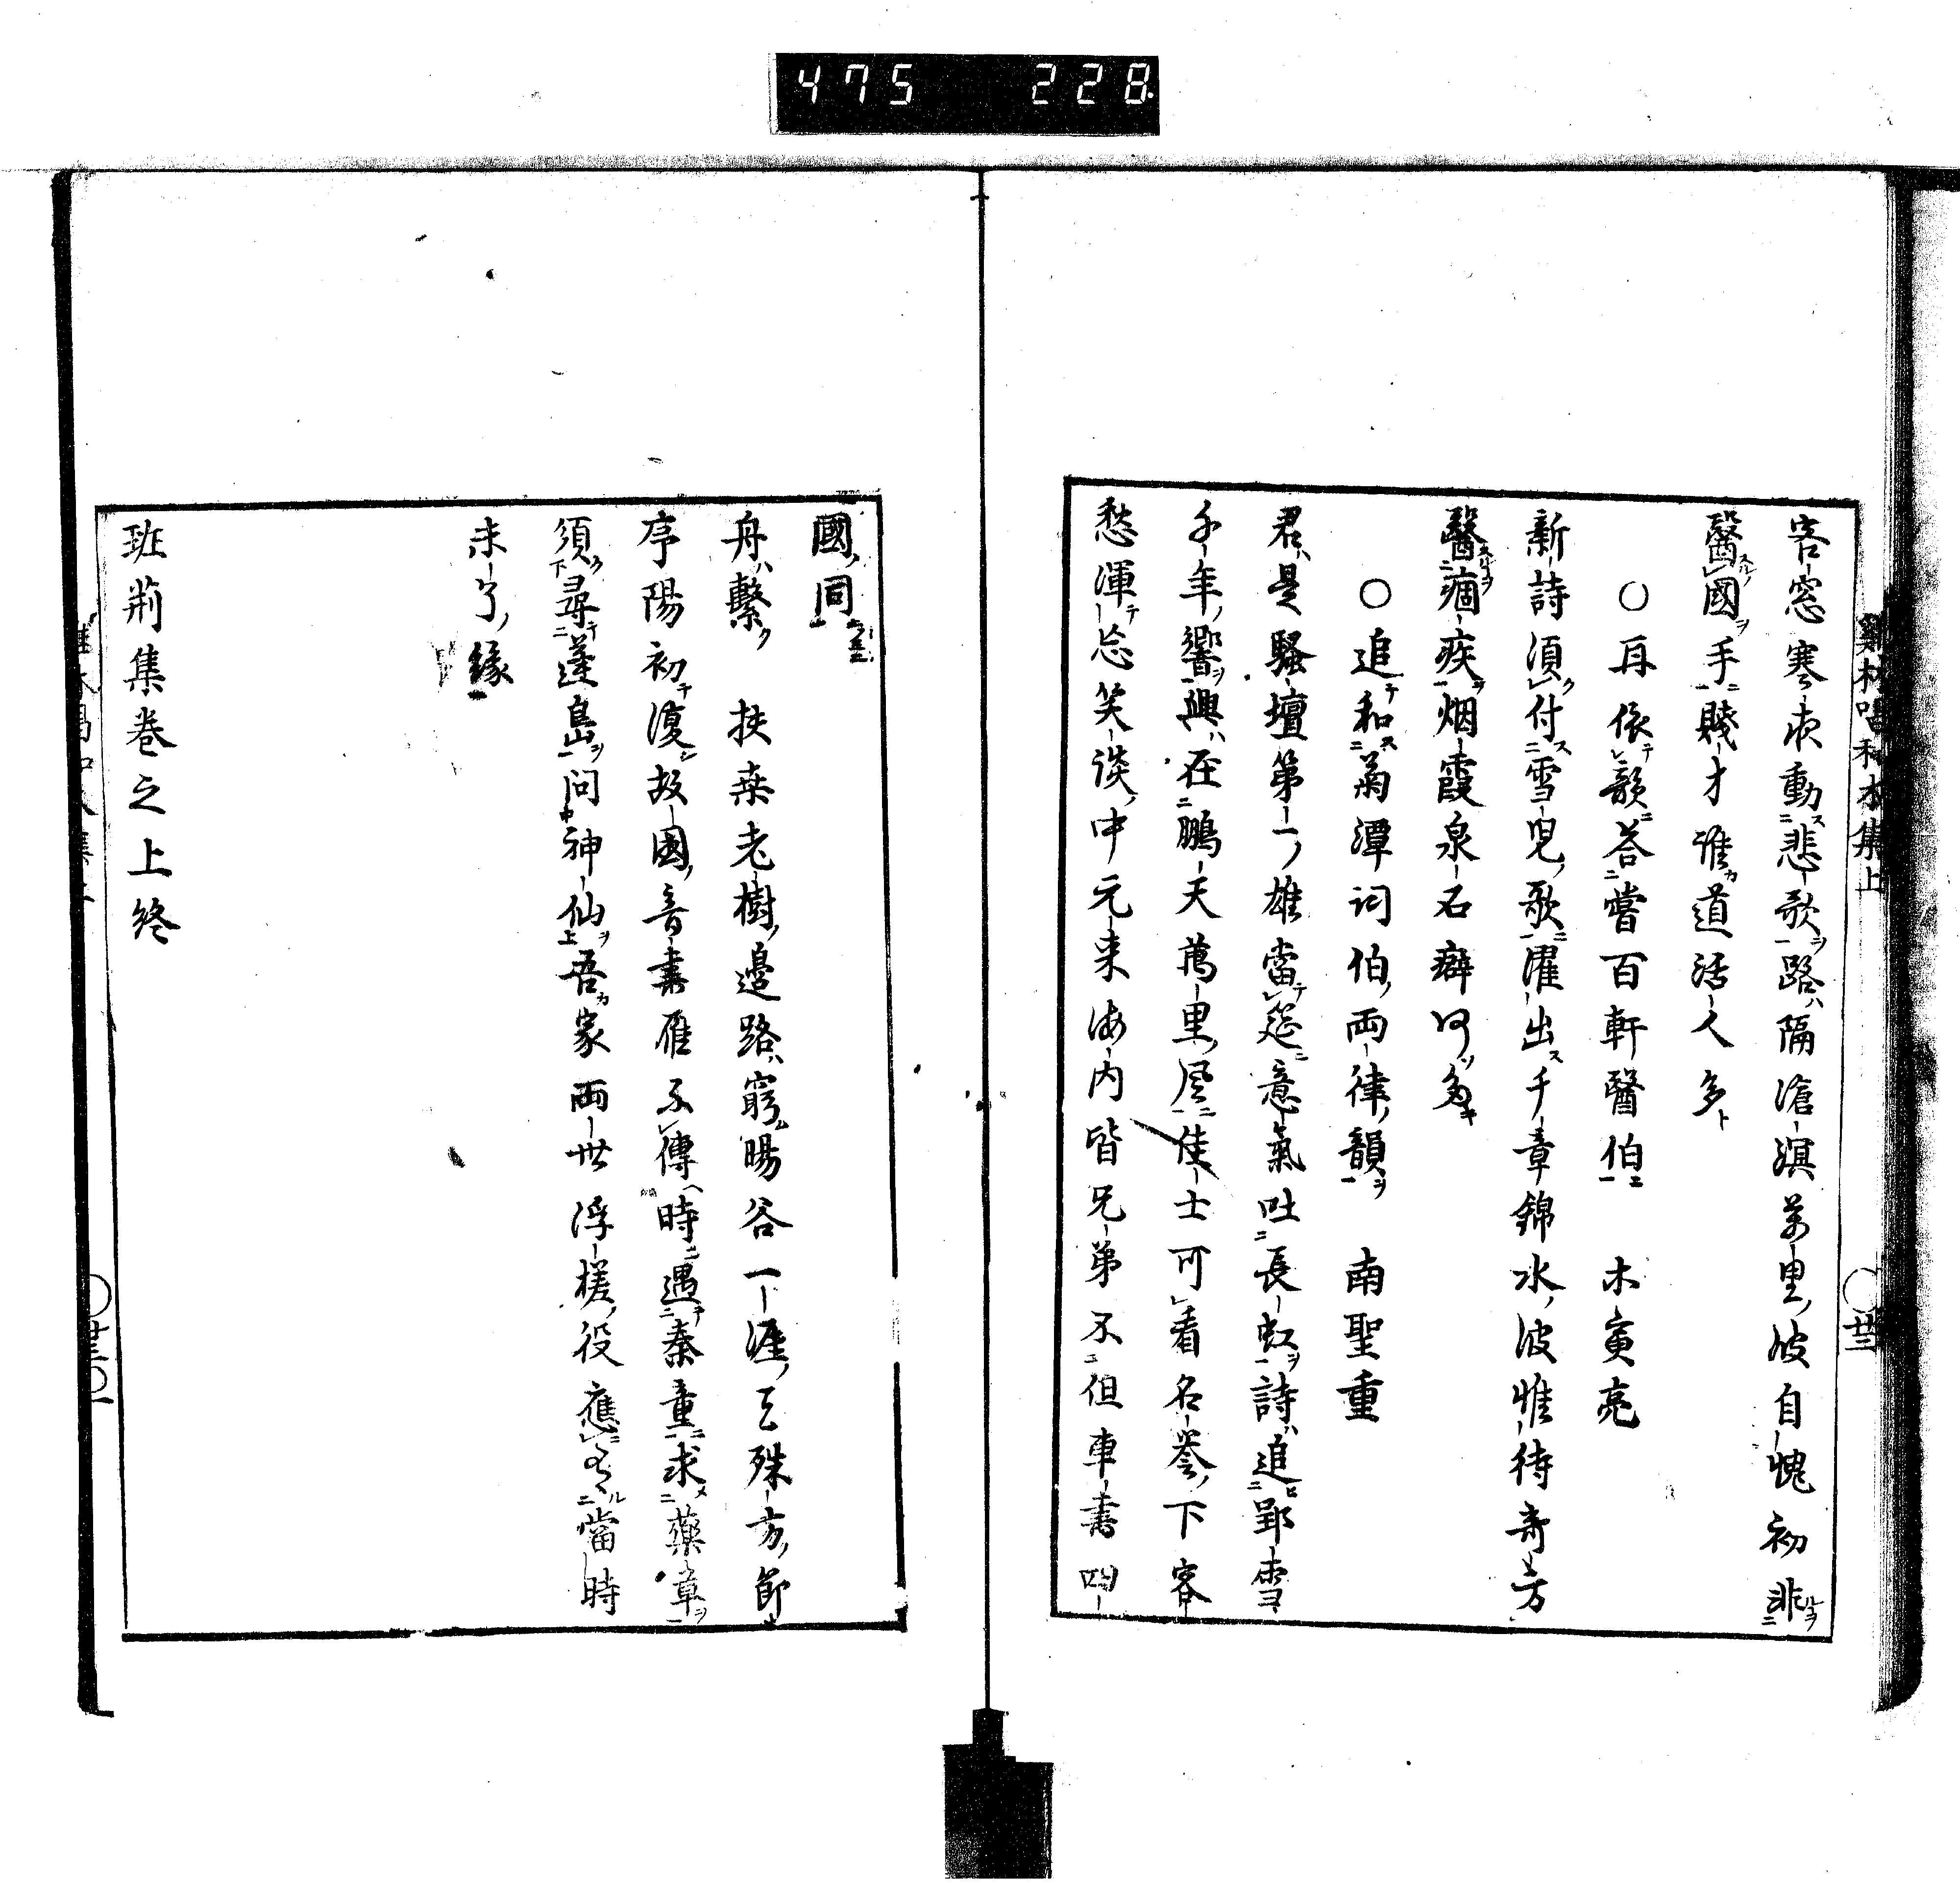 475 228
鷄林唱和 集上
客窓寒夜動悲歌路隔滄溟萬里波自愧初非
醫國手賤才誰道活人多
○再依韻答嘗百軒醫伯 木寅亮
新詩須付雪兒歌濯出千章錦水波惟待奇方
醫痼疾烟霞泉石癖何多
○追和菊潭詞伯兩律韻 南聖重
君是騷壇第一雄當筵意氣吐長虹詩追郢雪
千年響興在鵬天萬里風佳士可看名譽下客
愁渾忘笑談中元来海内皆兄弟不但車書四
廿三
國同
舟繫扶桒老樹邊路窮暘谷一涯天殊方節
序陽初復故國音書雁不傳時遇秦童求藥草
須尋蓬島問神仙吾家兩世浮槎役應有當時
未了緣
班荊集卷之上終